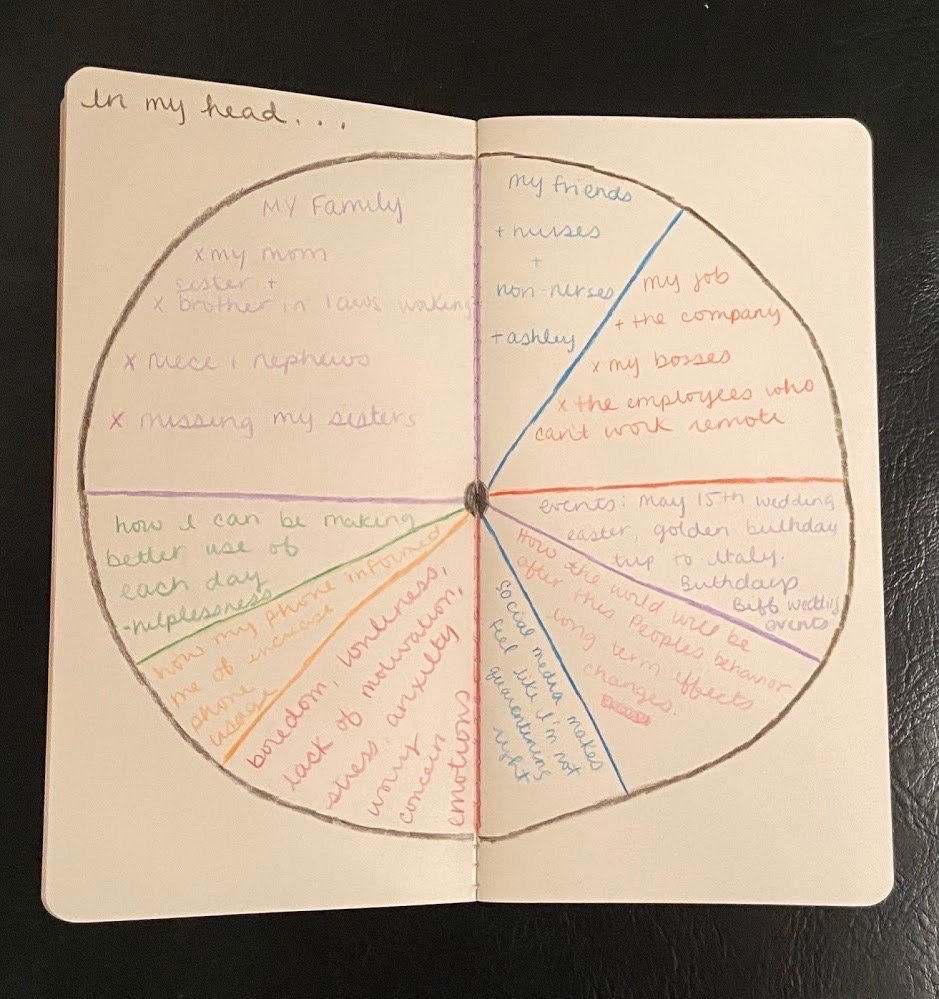 In my head...
My Family
x my mom
sister +
x brother in laws working
x niece + nephews
x missing my sisters
my friends
+ nurses
+
non-nurses
+ ashley
my job
+ the company
x my bosses
x the employees who
can't work remote
events: May 15th wedding
easter, golden birthday
trip to Italy.
Birthdays
Biff wedding
events
How the world will be
after this Peoples behavior
long term effects
changes.
social media makes
feel like I'm not
quarentining
right
boredom, lonliness,
lack of motivation,
stress, anxiety
worry
concern
emotions
how my phone informed
me of increase
phone
usage
how I can be making
better use of
each day
-helplessness